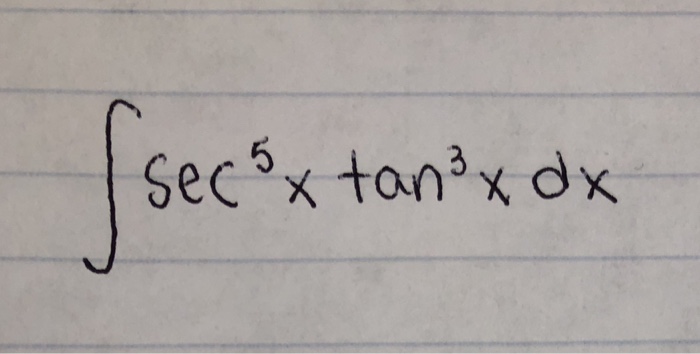 ∫ sec⁵x tan³x dx